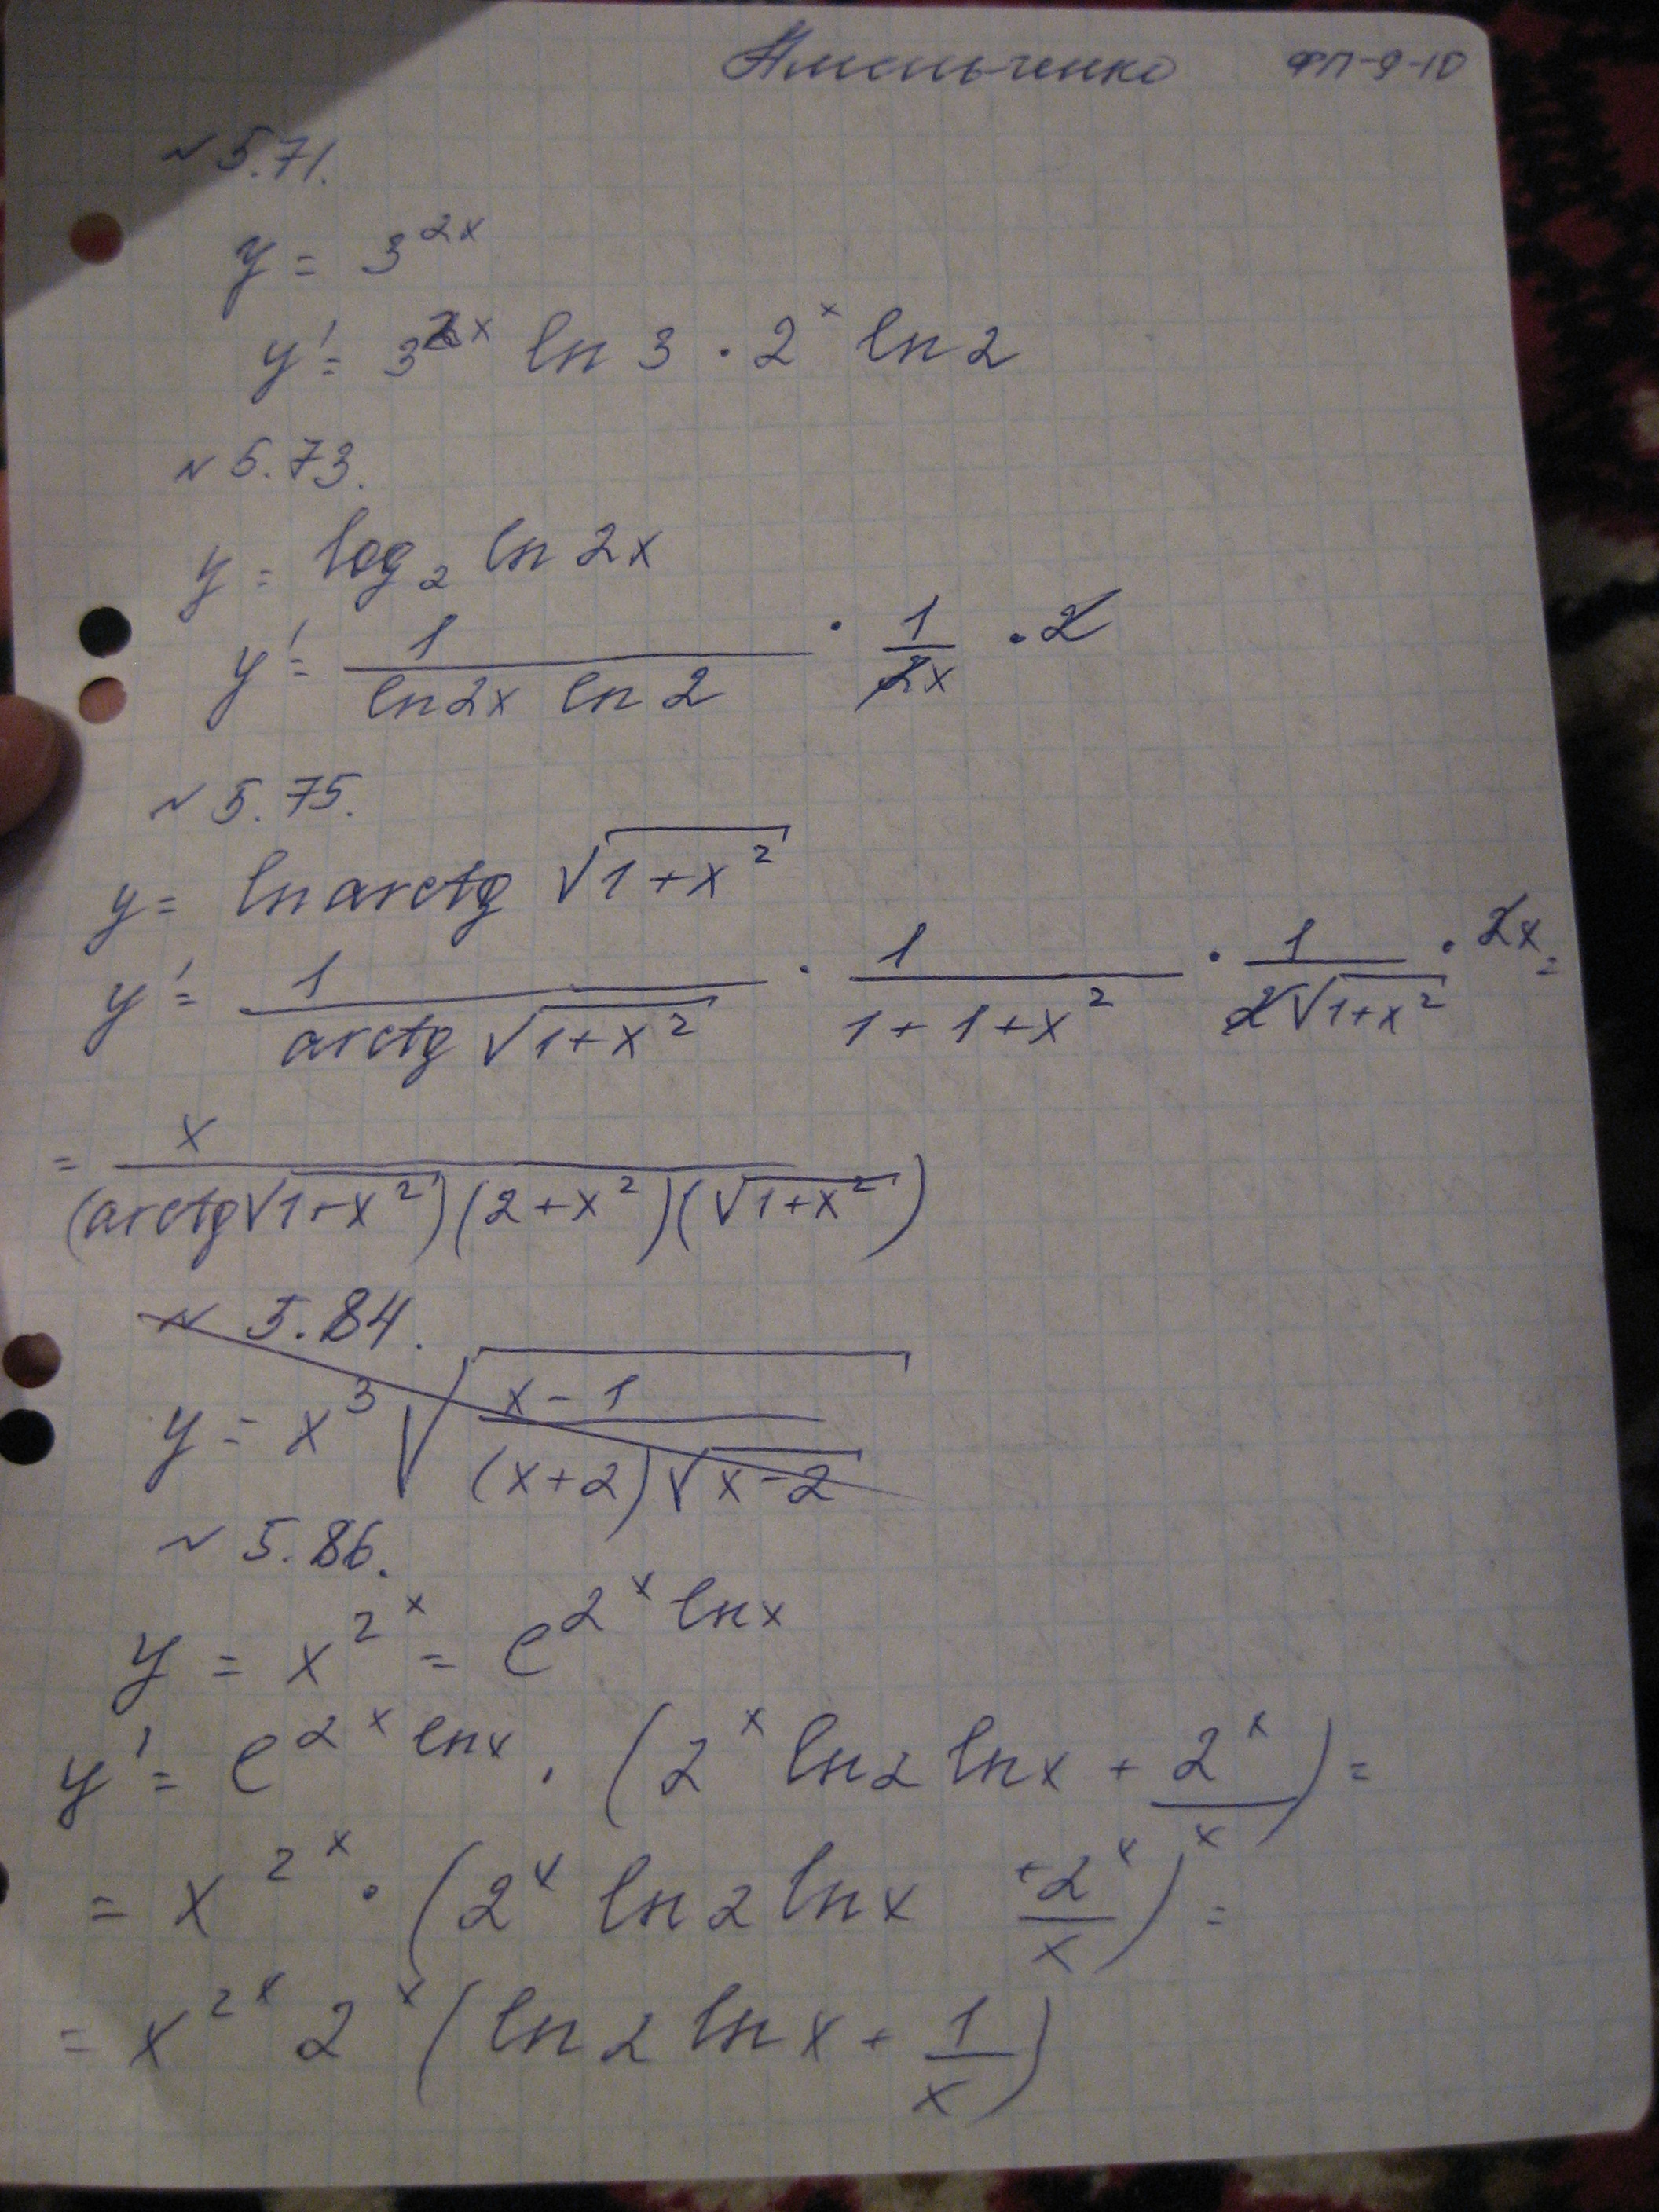 Амельченко ФП-9-10
№ 5.71.
y = 3^{2^x}
y' = 3^{2^x} ln 3 · 2^x ln 2
№ 5.73.
y = log_2 ln 2x
y' = \frac{1}{ln 2x ln 2} · \frac{1}{2x} · 2
№ 5.75.
y = ln arctg √(1+x²)
y' = \frac{1}{arctg √(1+x²)} · \frac{1}{1+1+x²} · \frac{1}{2√(1+x²)} · 2x =
= \frac{x}{(arctg √(1+x²))(2+x²)(√(1+x²))}
№ 5.84.
y = x³ √(\frac{x-1}{(x+2)√(x-2)})
№ 5.86.
y = x^{2^x} = e^{2^x ln x}
y' = e^{2^x ln x} · (2^x ln 2 ln x + \frac{2^x}{x}) =
= x^{2^x} · (2^x ln 2 ln x + \frac{2^x}{x}) =
= x^{2^x} 2^x (ln 2 ln x + \frac{1}{x})